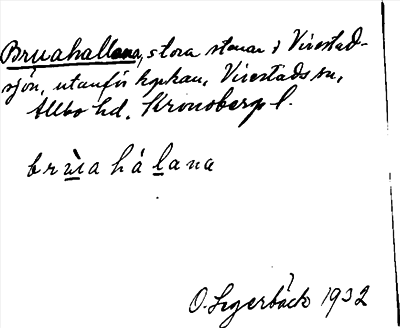 Bruahallana, stora stenar i Virestad-
sjön, utanför kyrkan, Virestads sn,
Allbo hd. Kronobergs l.
brùa há lana
O. Segerbäck 1932